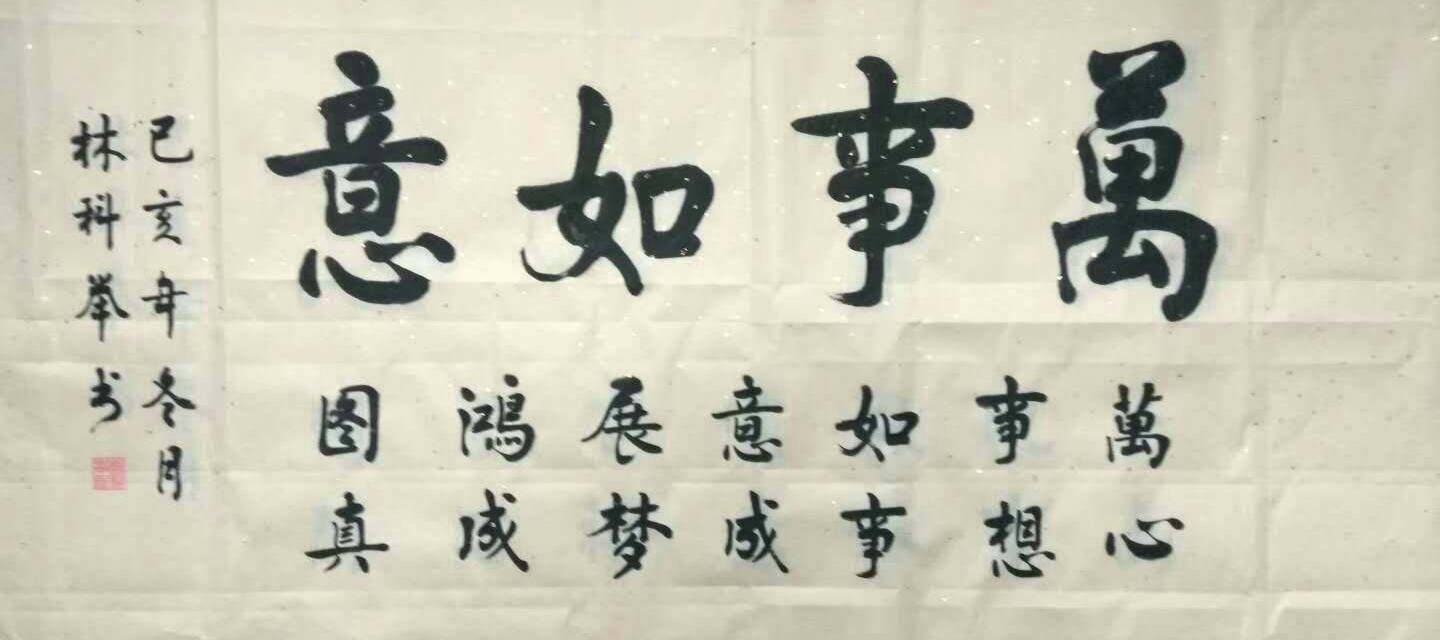 萬事如意
萬事如意展鴻图
心想事成梦成真
己亥年冬月
林科举书